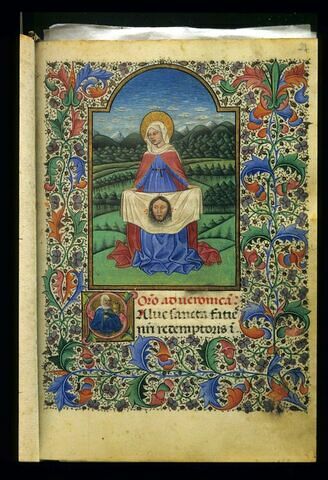 Oro ad ueronicã:
SAlue sancta facie
nr̃i redemptoris i